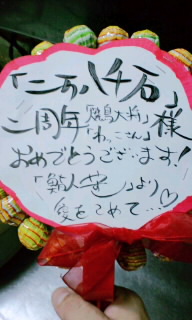 「二万八千石」様
二周年「焼鳥大将」「わっこさん」
おめでとうございます!
「鮨人」より
愛をこめて…♡